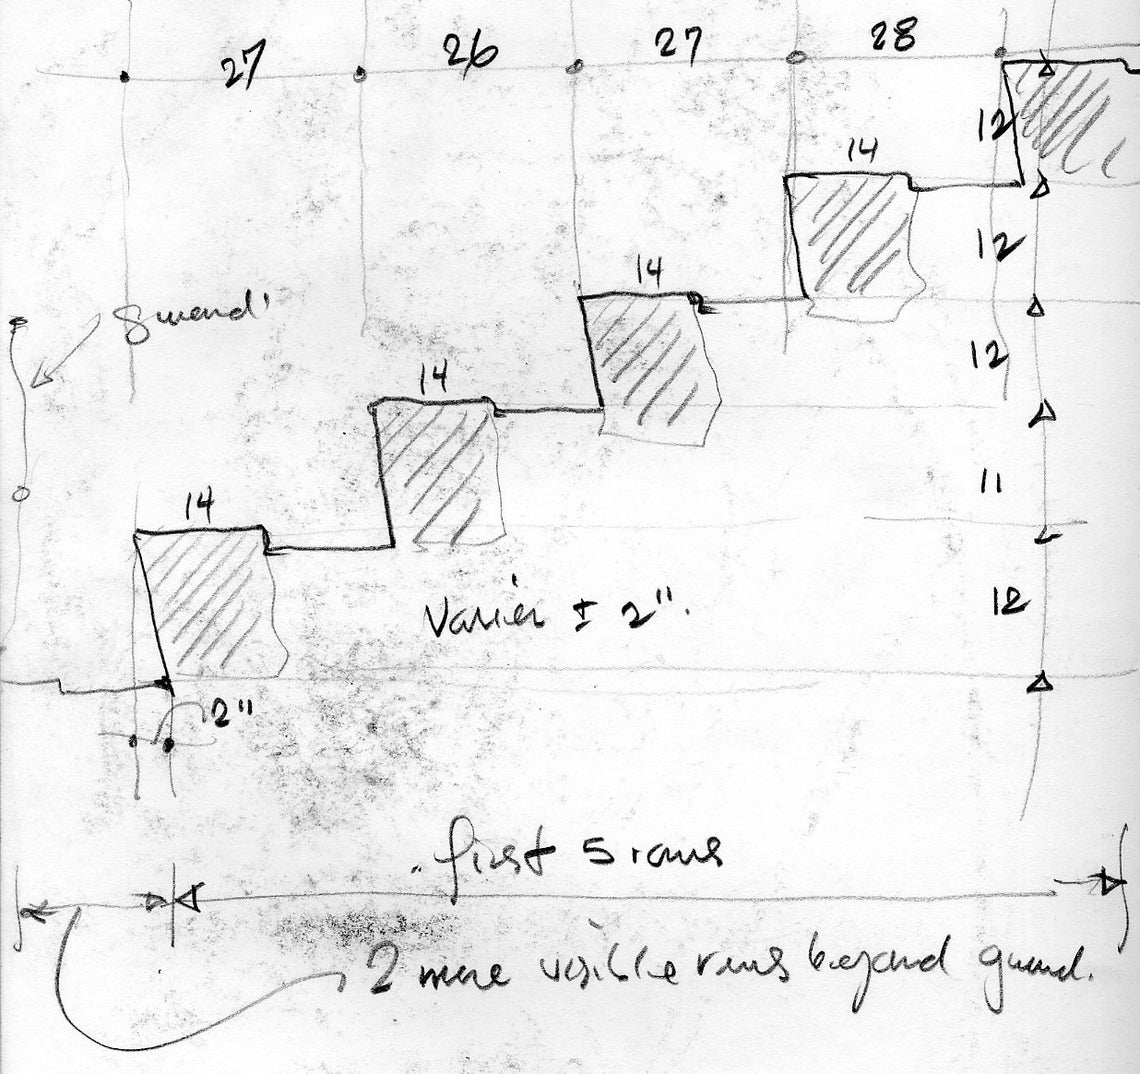 27 26 27 28
12
14
12
14
guard
12
14
11
14
12
Varies ± 2".
2"
first 5 rows
2 more visible rows beyond guard.